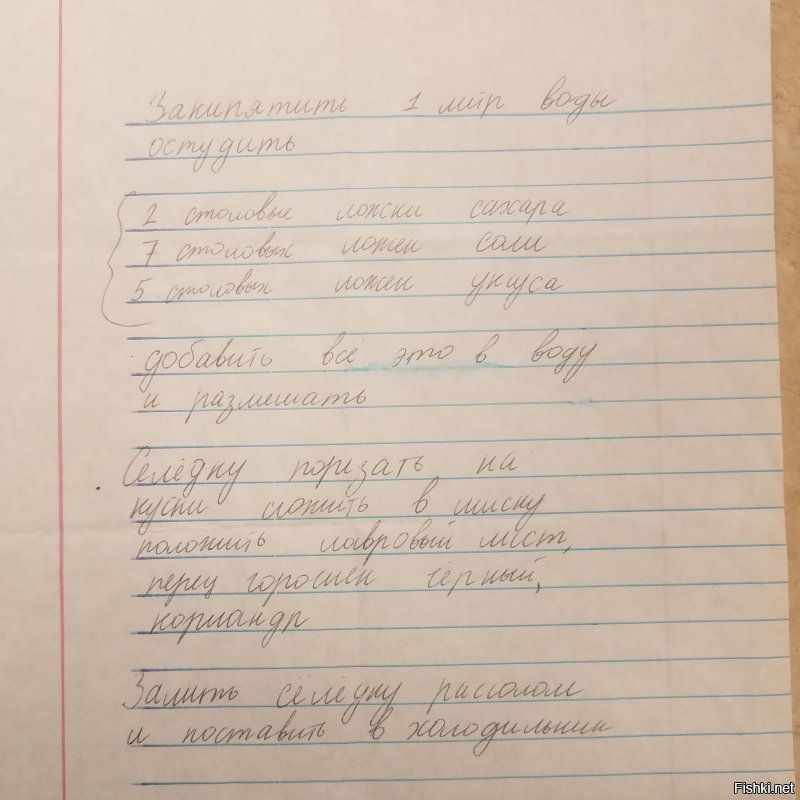 Закипятить 1 литр воды
остудить
2 столовые ложки сахара
7 столовых ложек соли
5 столовых ложек уксуса
добавить всё это в воду
и размешать
Селёдку порезать на
куски сложить в миску
положить лавровый лист,
перец горошек чёрный,
кориандр
Залить сёлёдку рассолом
и поставить в холодильник
Fishki.net